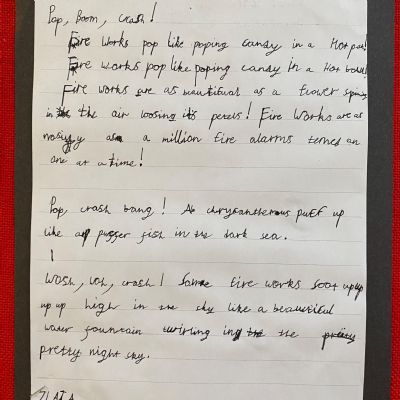 Pop, Boom, Crash!
Fire works pop like poping candy in a Hot pan!
Fire works pop like poping candy in a Hot bowl!
Fire works are as beautifual as a flower spining
in the the air loosing it's petels! Fire works are as
noisy as a million fire alarms terned on
one at a time!
Pop, crash bang! As chrysanthemous puff up
like a puffer fish in the dark sea.
Wosh, Woh, crash! Some fire works soot up up
up up high in the sky like a beautiful
water fountain twirling in the the pretty
pretty night sky.
ZLATA